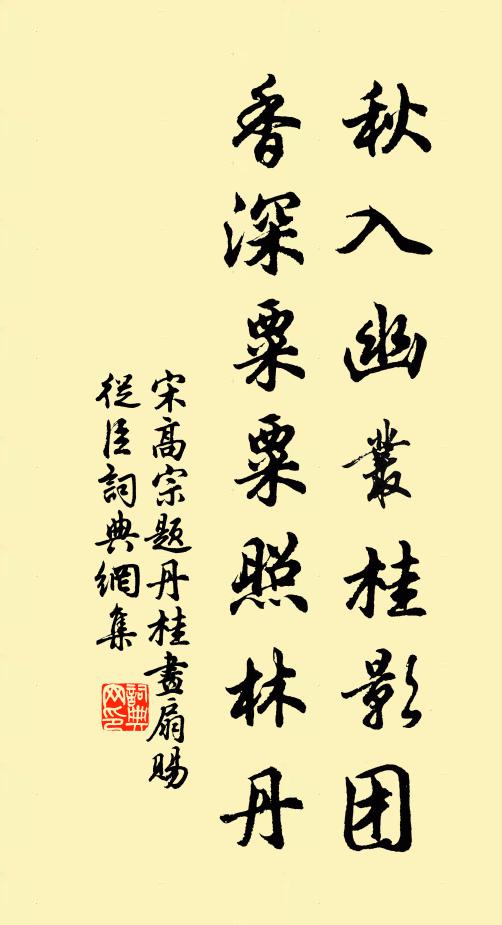 秋入幽叢桂影团
香深粟粟照林丹
宋高宗題丹桂畫扇賜
從臣詞典網集
詞典网印